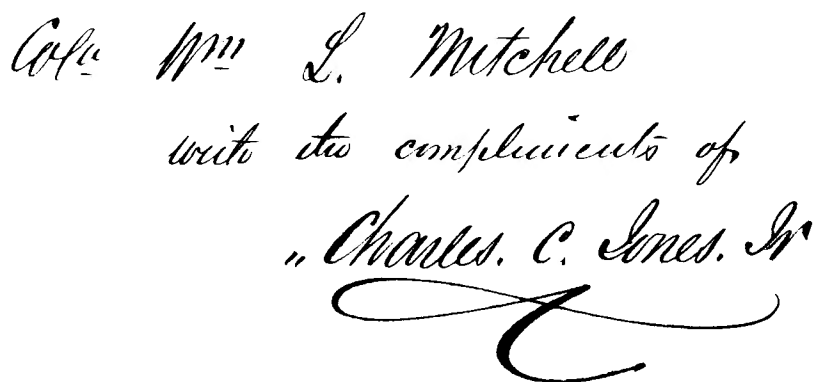 Col. Wm L. Mitchell
with the compliments of
„ Charles. C. Jones. Jr